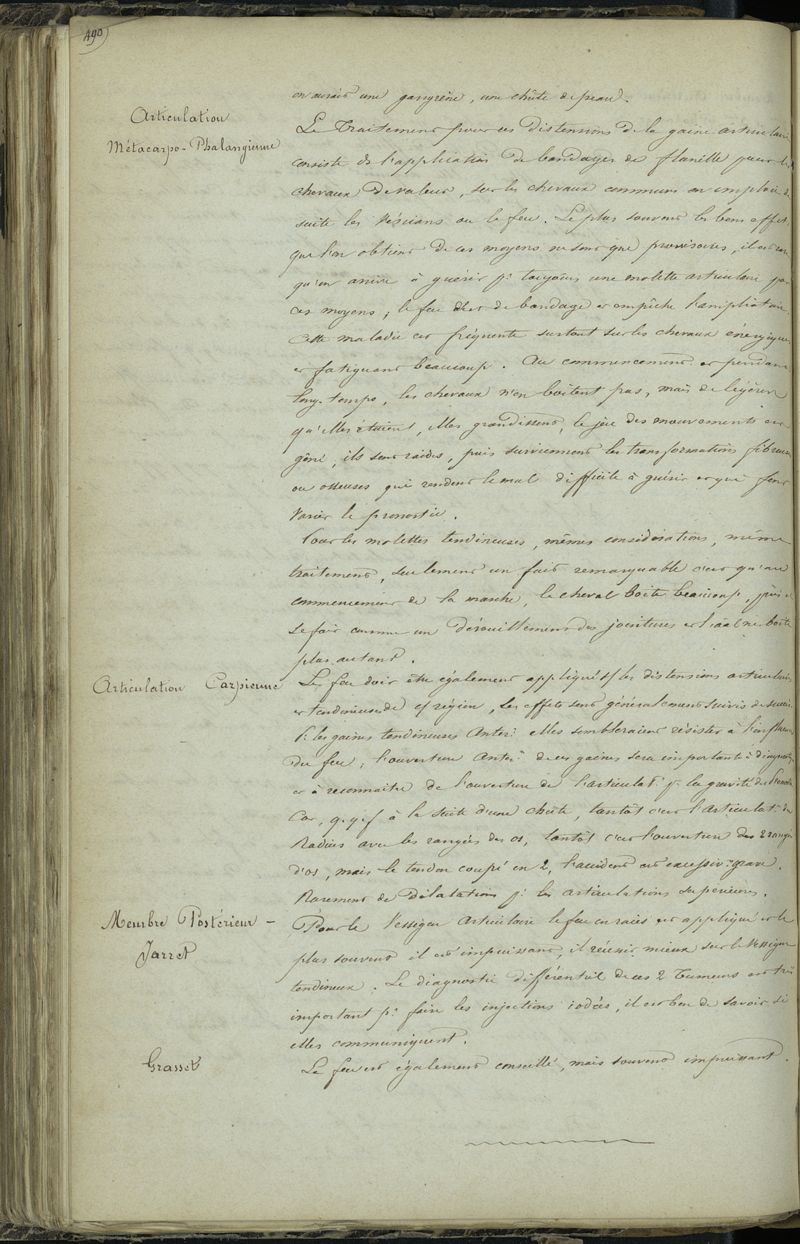 490
on aurait une gangrène, une chûte de peau.
Articulation
Métacarpo-Phalangienne
Le Traitement pour ces distensions de la gaine articulaire
consiste ds l'application de bandages de flanelle pour les
chevaux de valeur, sur les chevaux communs on emploie de
suite les vésicans ou le feu. Le plus souvent les bons effets
que l'on obtient de ces moyens ne sont que provisoires, il est rare
qu'on arrive à guérir pr toujours une molette articulaire par
ces moyens, le feu sert de bandage et empêche l'ampliation.
Cette maladie est fréquente surtout sur les chevaux énergiques
et fatiguant beaucoup. Au commencement et pendant
long-temps, les chevaux n'en boitent pas, mais de légères
qu'elles étaient, elles grandissent, le jeu des mouvements est
gêné, ils sont raides, puis surviennent les transformations fibreuses
ou osseuses qui rendent le mal difficile à guérir et qui font
varier le pronostic.
Pour les molettes tendineuses, mêmes considérations, même
traitement, seulement un fait remarquable c'est qu'au
commencement de la marche, le cheval boite beaucoup, puis il
se fait comme un dérouillement des jointures et l'aal ne boite
plus autant.
Articulation Carpienne
Le feu doit être également appliqué s/ les distensions articulaires
et tendineuses de c/ région, les effets sont généralement suivis de succès
les gaines tendineuses Antérr elles sembleraient résister à l'influence
du feu, l'ouverture Antérr de ces gaines sera importante à diagnostiquer
et à reconnaitre de l'ouverture de l'articulatn pr la gravité de
Car, q.q.f à la suite d'une chûte, tantôt c'est l'articulatn du
Radius avec les rangées des os, tantôt c'est l'ouverture des 2 rangées
d'os, mais le tendon coupé en 2, l'accident est excessivt grave.
Rarement de dilatation pr les articulations supérieures.
Membre Postérieur -
Jarret
Pour le Vessigon Articulaire le feu en raies est appliqué et le
plus souvent il est impuissant, il réussit mieux sur le Vessigon
tendineux. Le diagnostic différentiel de ces 2 tumeurs est très
important pr faire les injections iodées, il est bon de savoir si
elles communiquent.
Grasset
Le feu est également conseillé, mais souvent impuissant.